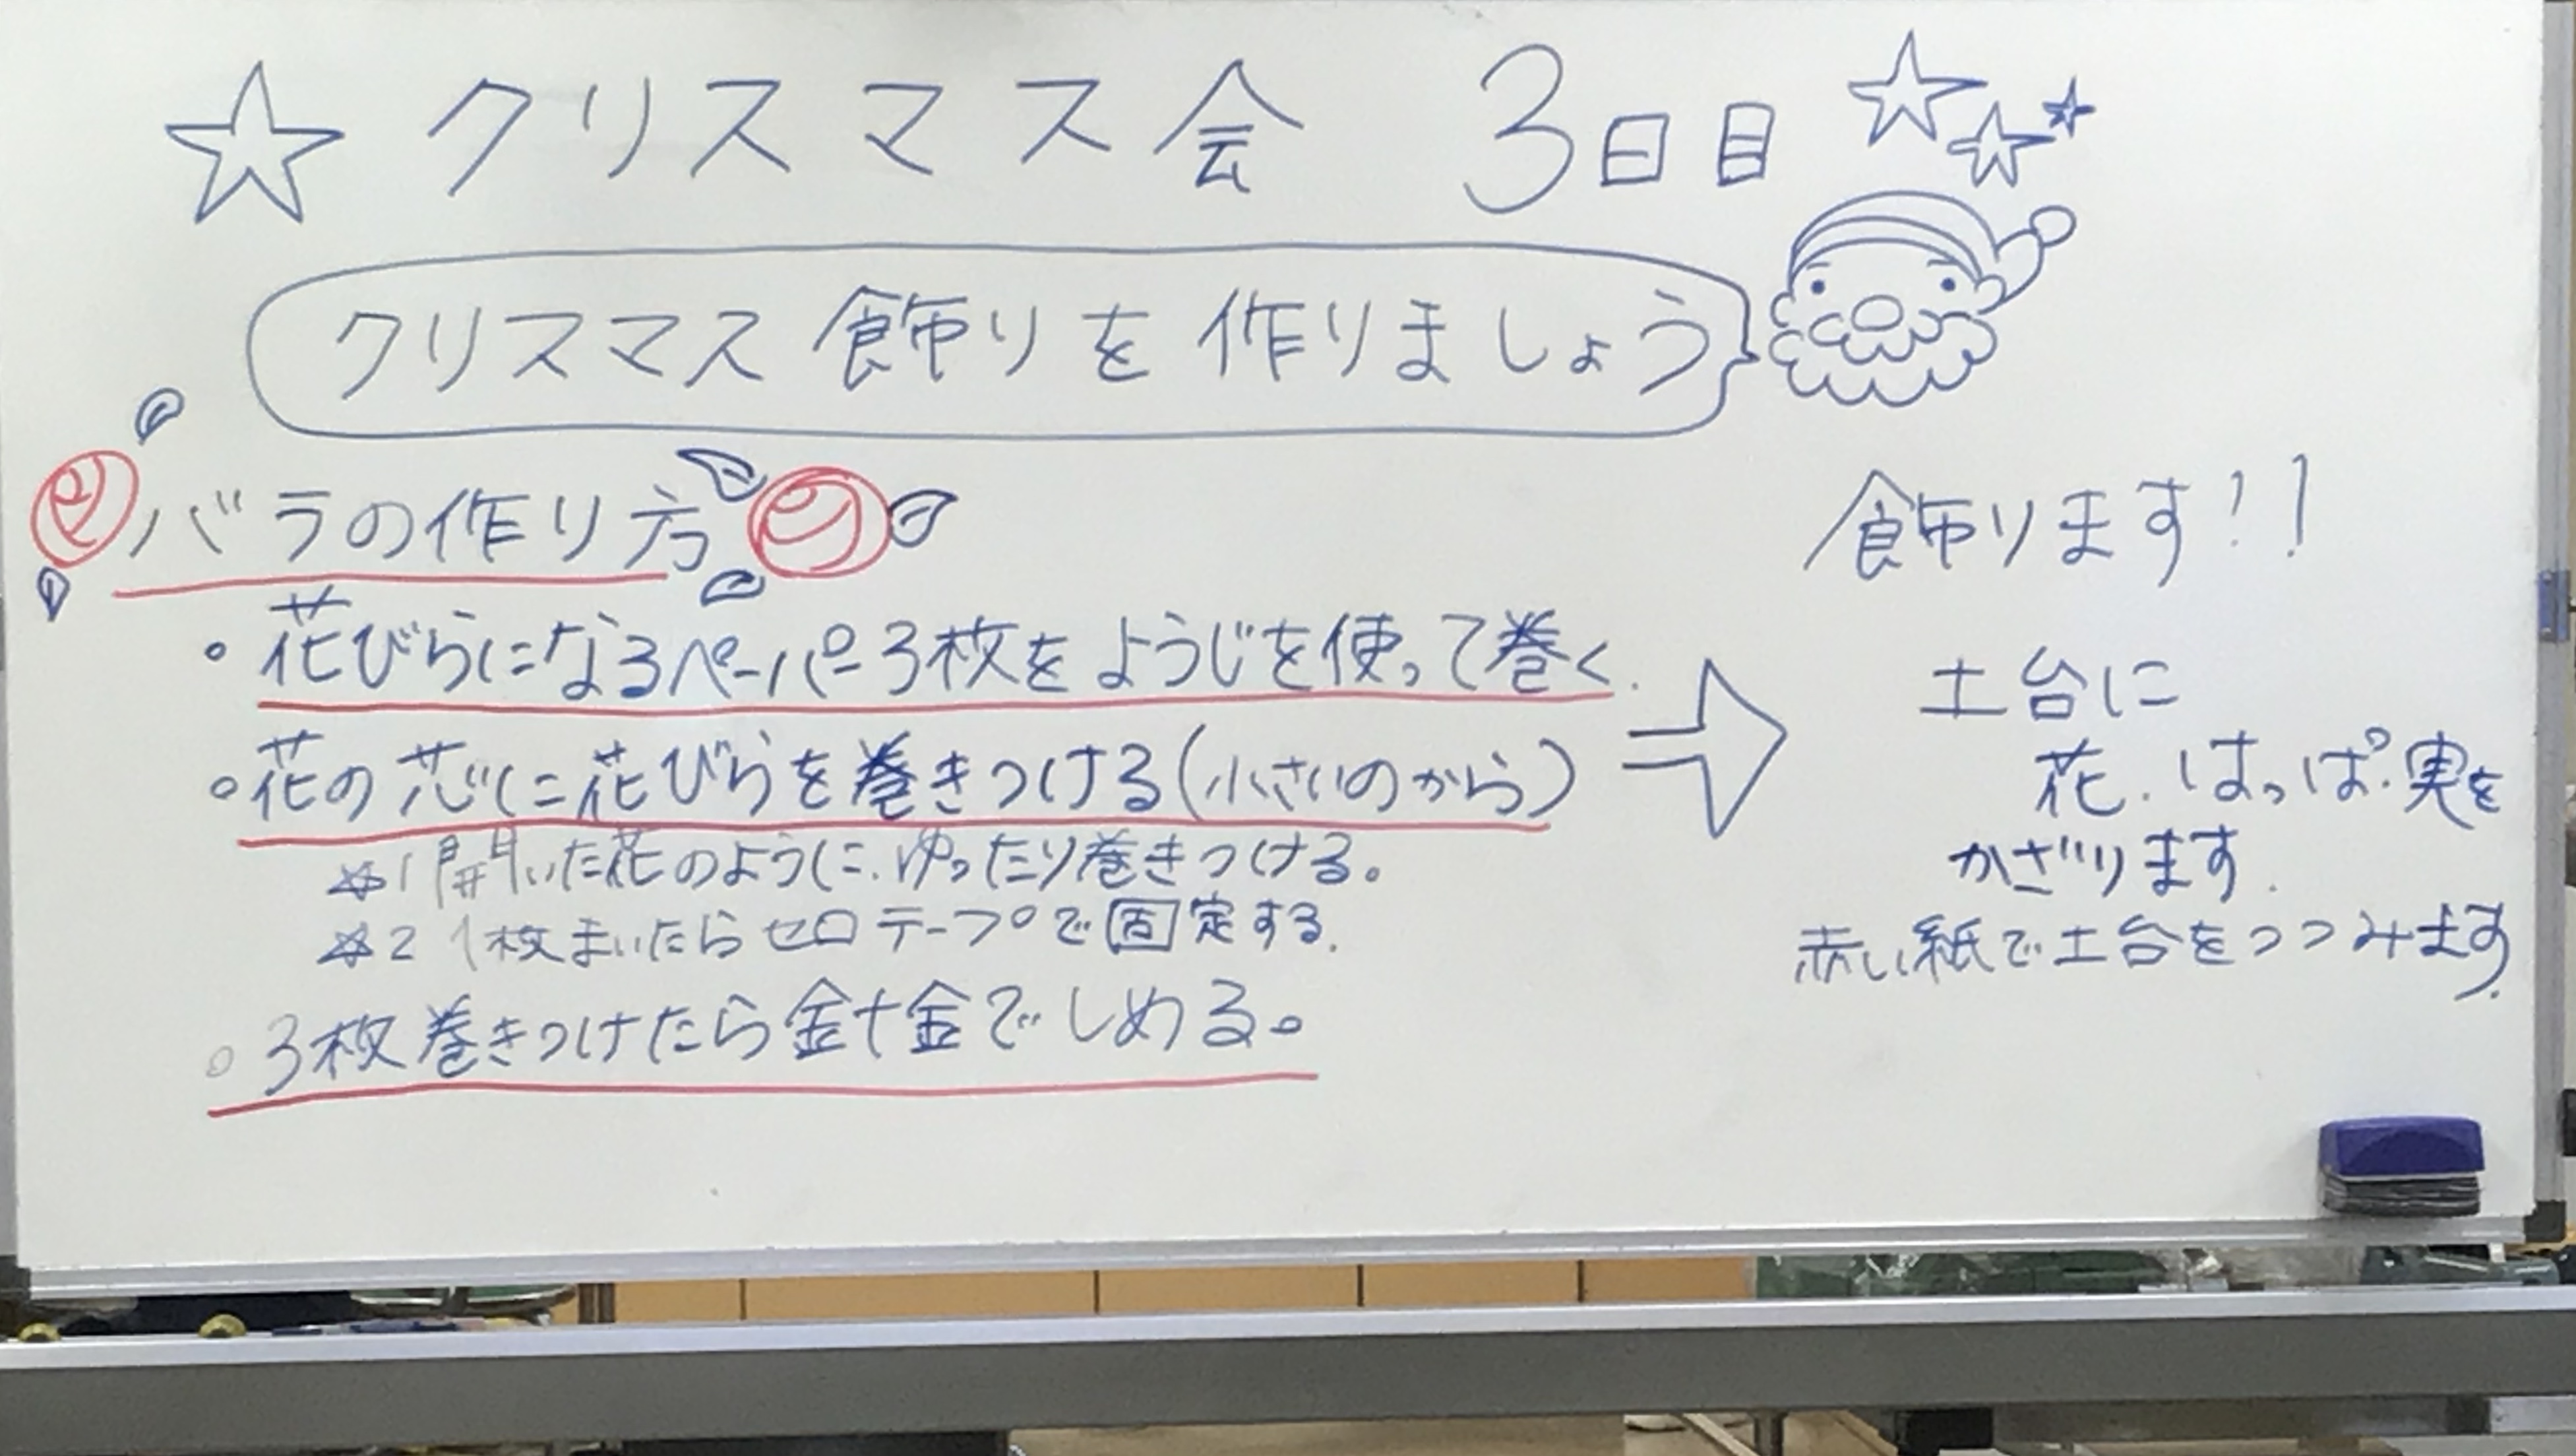 ☆ クリスマス会 3日目
クリスマス飾りを作りましょう
バラの作り方
・花びらになるペーパー3枚をようじを使って巻く.
・花の芯に花びらを巻きつける(小さいのから)
☆1 開いた花のように、ゆったり巻きつける。
☆2 1枚まいたらセロテープで固定する.
・3枚巻きつけたら針金でしめる。
飾ります!!
土台に
花、はっぱ・実を
かざります.
赤い紙で土台をつつみます.